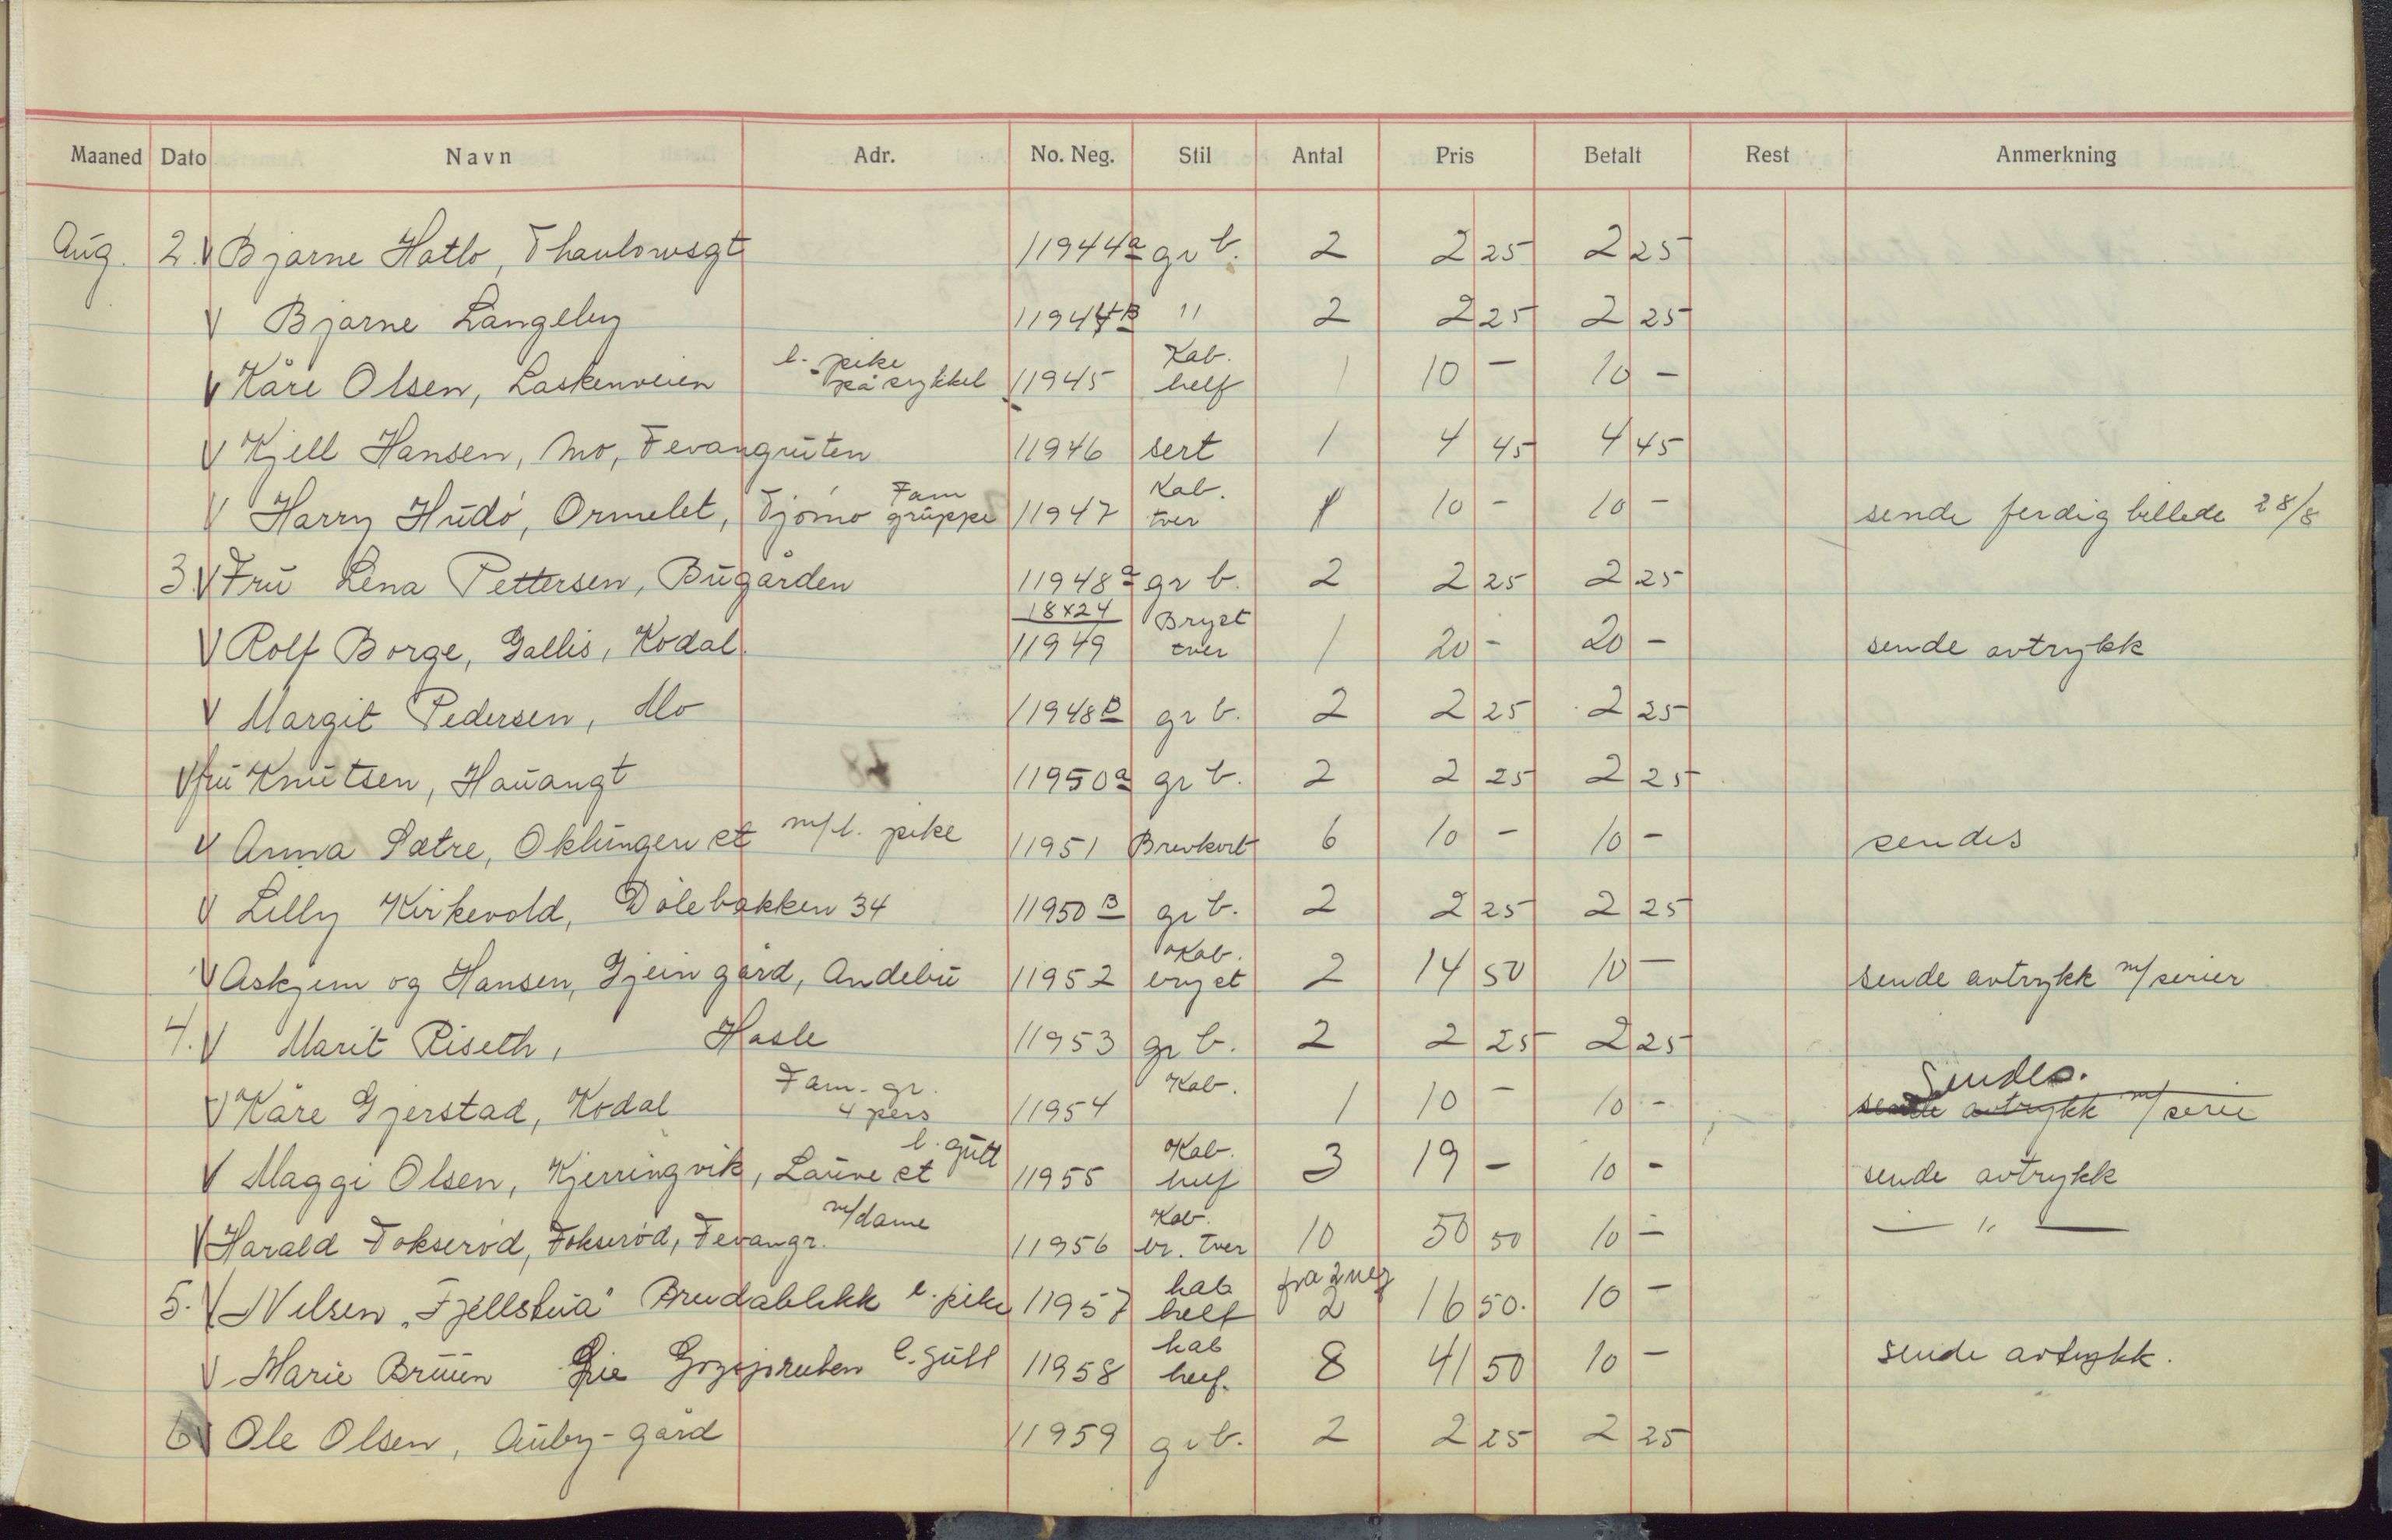 Maaned Dato Navn Adr. No. Neg. Stil Antal Pris Betalt Rest Anmerkning
Aug. 2. V Bjarne Hatlo, Thaulowsgt 11944a gr b. 2 2 25 2 25
V Bjarne Langeby 11944B " 2 2 25 2 25
V Kåre Olsen, Laskenveien l. pike på sykkel 11945 Kab. helf 1 10 - 10 -
V Kjell Hansen, Mo, Fevangruten 11946 sert 1 4 45 4 45
V Harry Hudø, Ormelet, Tjømø Fam gruppe 11947 Kab. tver 1 10 - 10 - sende ferdig billede 28/8
3. V Fru Lena Pettersen, Bugården 11948a gr b. 2 2 25 2 25
V Rolf Borge, Gallis, Kodal. 18x24 11949 Bryst tver 1 20 - 20 - sende avtrykk
V Margit Pedersen, Mo 11948B gr b. 2 2 25 2 25
V fru Knutsen, Hauangt 11950a gr b. 2 2 25 2 25
V Anna Sætre, Oklungen st m/l. pike 11951 Brevkort 6 10 - 10 - sendes
V Lilly Kirkevold, Dølebakken 34 11950B gr b. 2 2 25 2 25
V Askjem og Hansen, Gjein gård, Andebu 11952 Kab. bryst 2 14 50 10 - sende avtrykk m/serier
4. V Marit Riseth, Hasle 11953 gr b. 2 2 25 2 25
V Kåre Gjerstad, Kodal Fam. gr. 4 pers 11954 Kab. 1 10 - 10 - Sendes. sende avtrykk m/serie
V Maggi Olsen, Kjerringvik, Lauve st l. gutt 11955 Kab. helf 3 19 - 10 - sende avtrykk
V Harald Fokserød, Fokserød, Fevangr. m/dame 11956 Kab. br. tver 10 50 50 10 - — " —
5. V Nilsen "Fjellstua" Breidablikk l. pike 11957 kab helf fra 2 neg 2 16 50. 10 -
V Marie Bruun l. gutt 11958 kab helf. 8 41 50 10 - sende avtrykk.
6 V Ole Olsen, Auby-gård 11959 gr b. 2 2 25 2 25